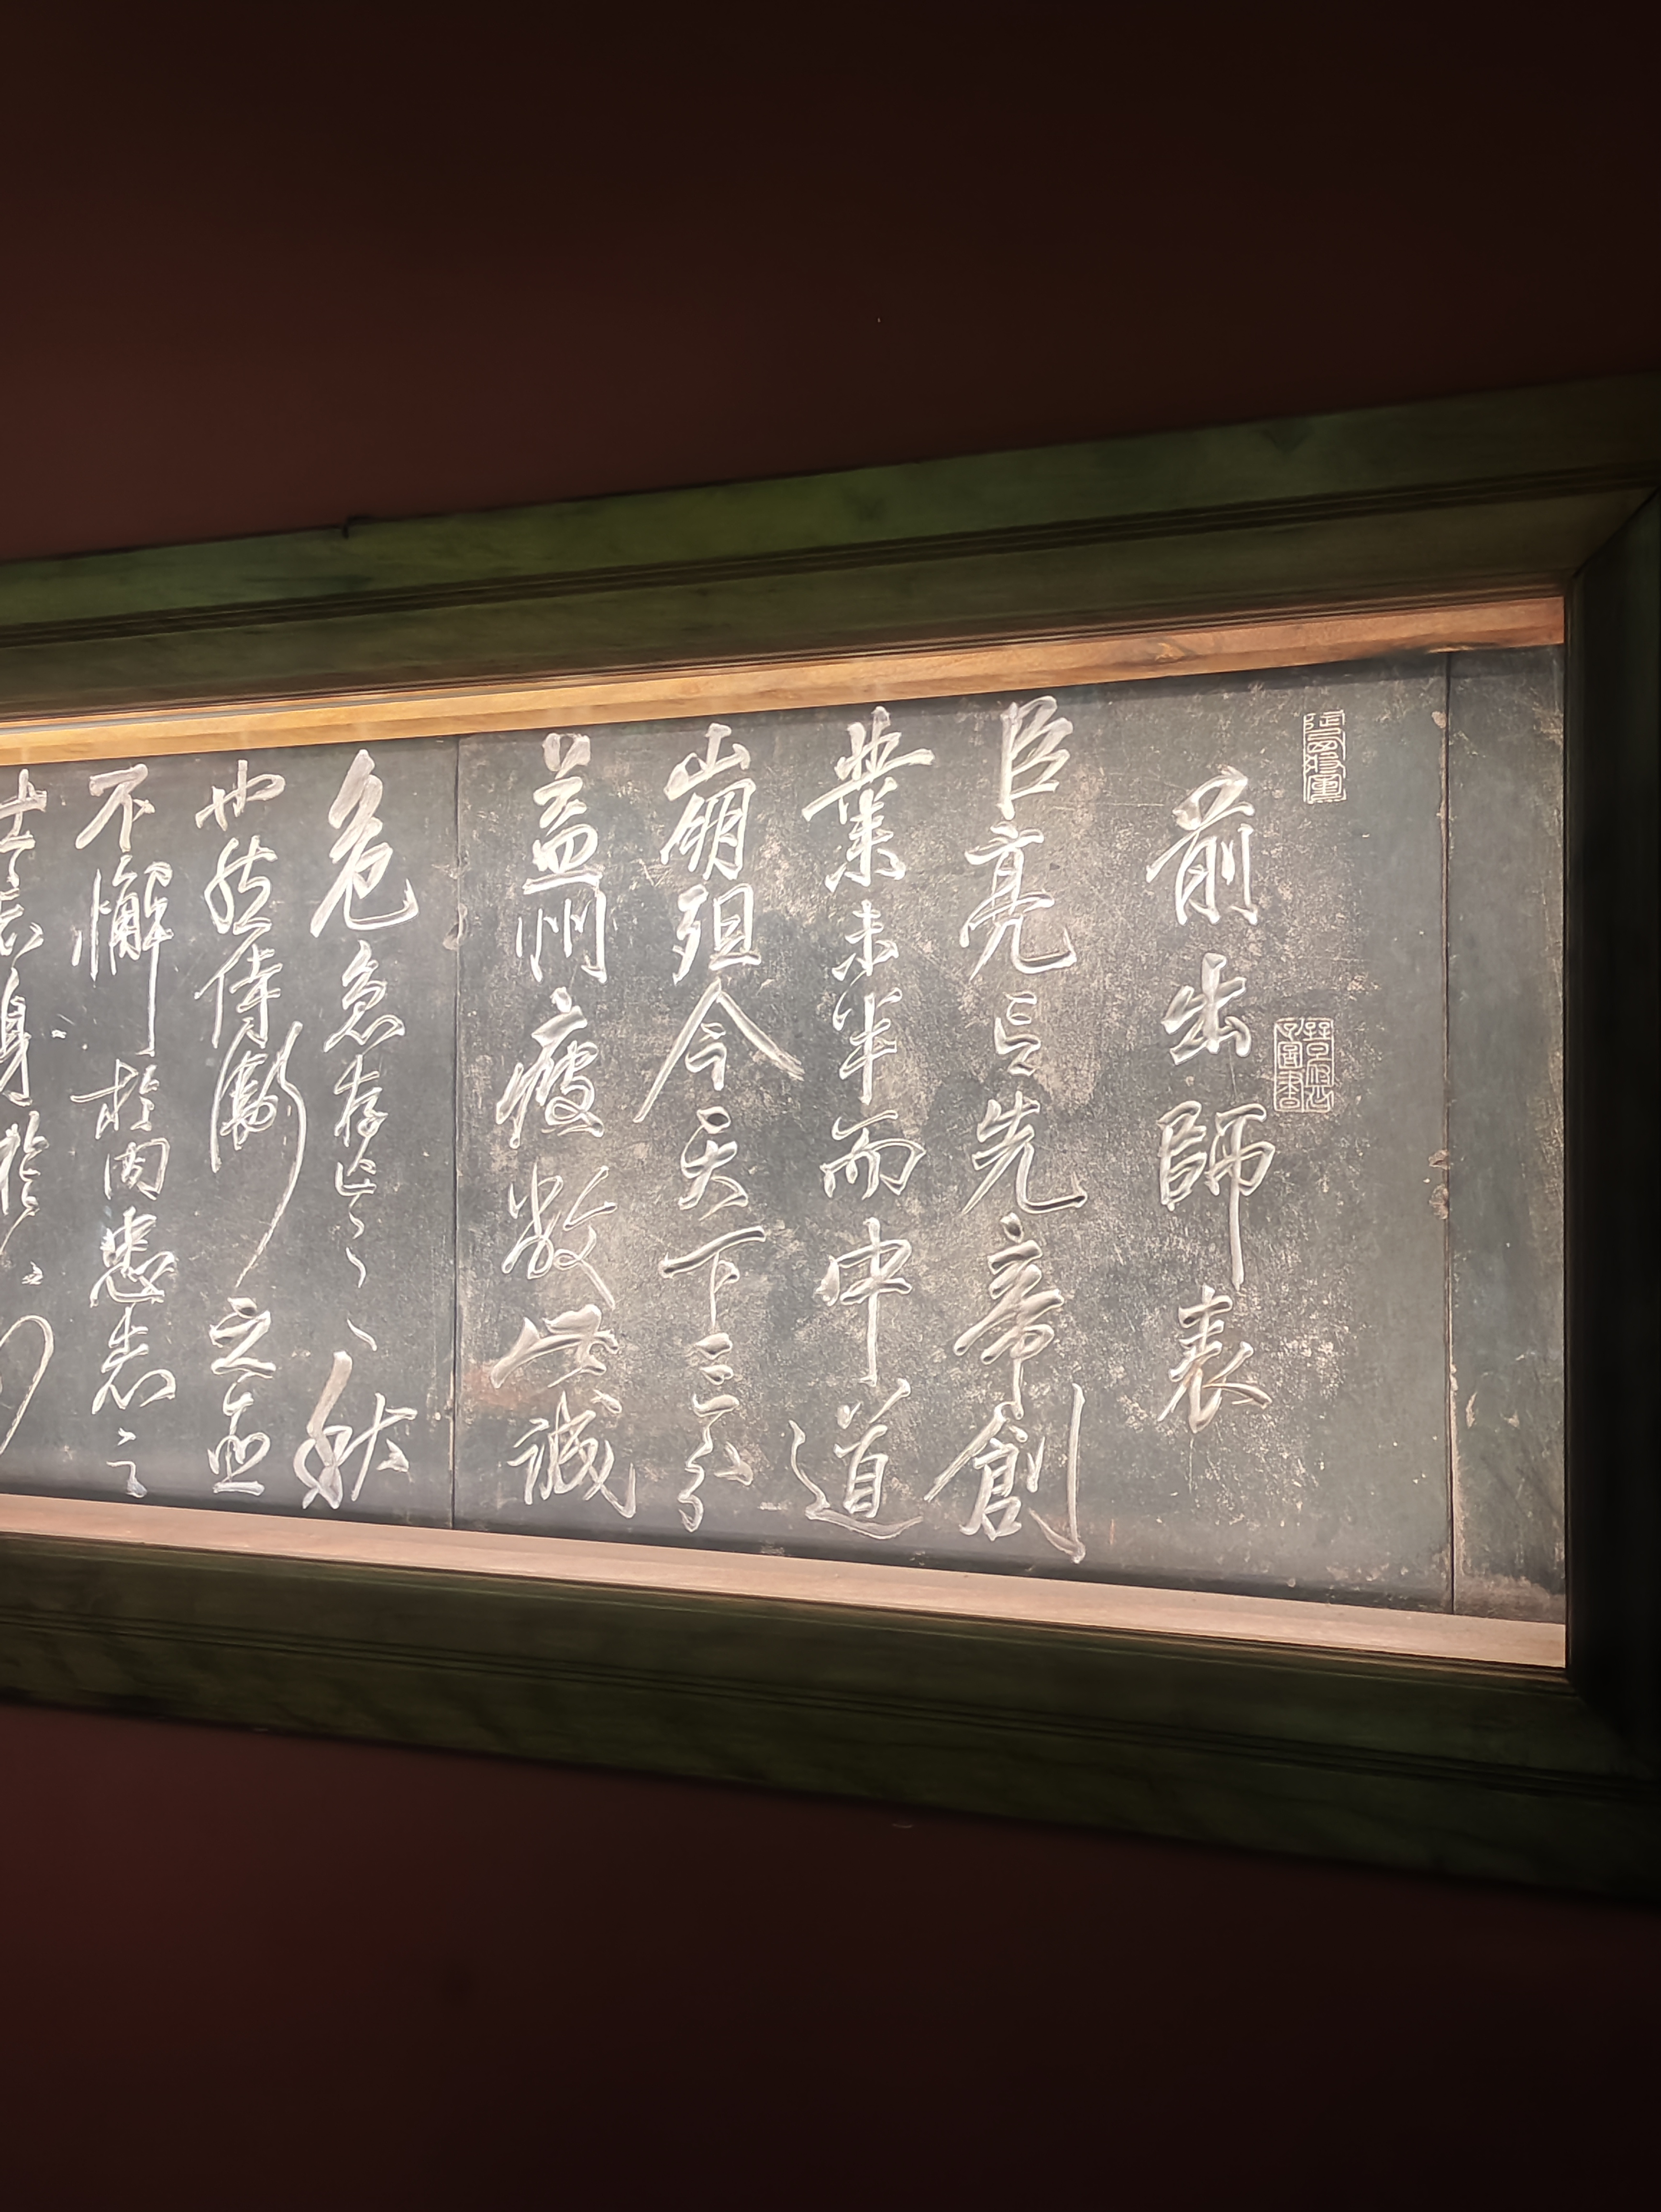 前出師表
臣亮言先帝創
業未半而中道
崩殂今天下三分
益州疲敝此誠
危急存亡之秋
也然侍衛之臣
不懈於内忠志之
士忘身於